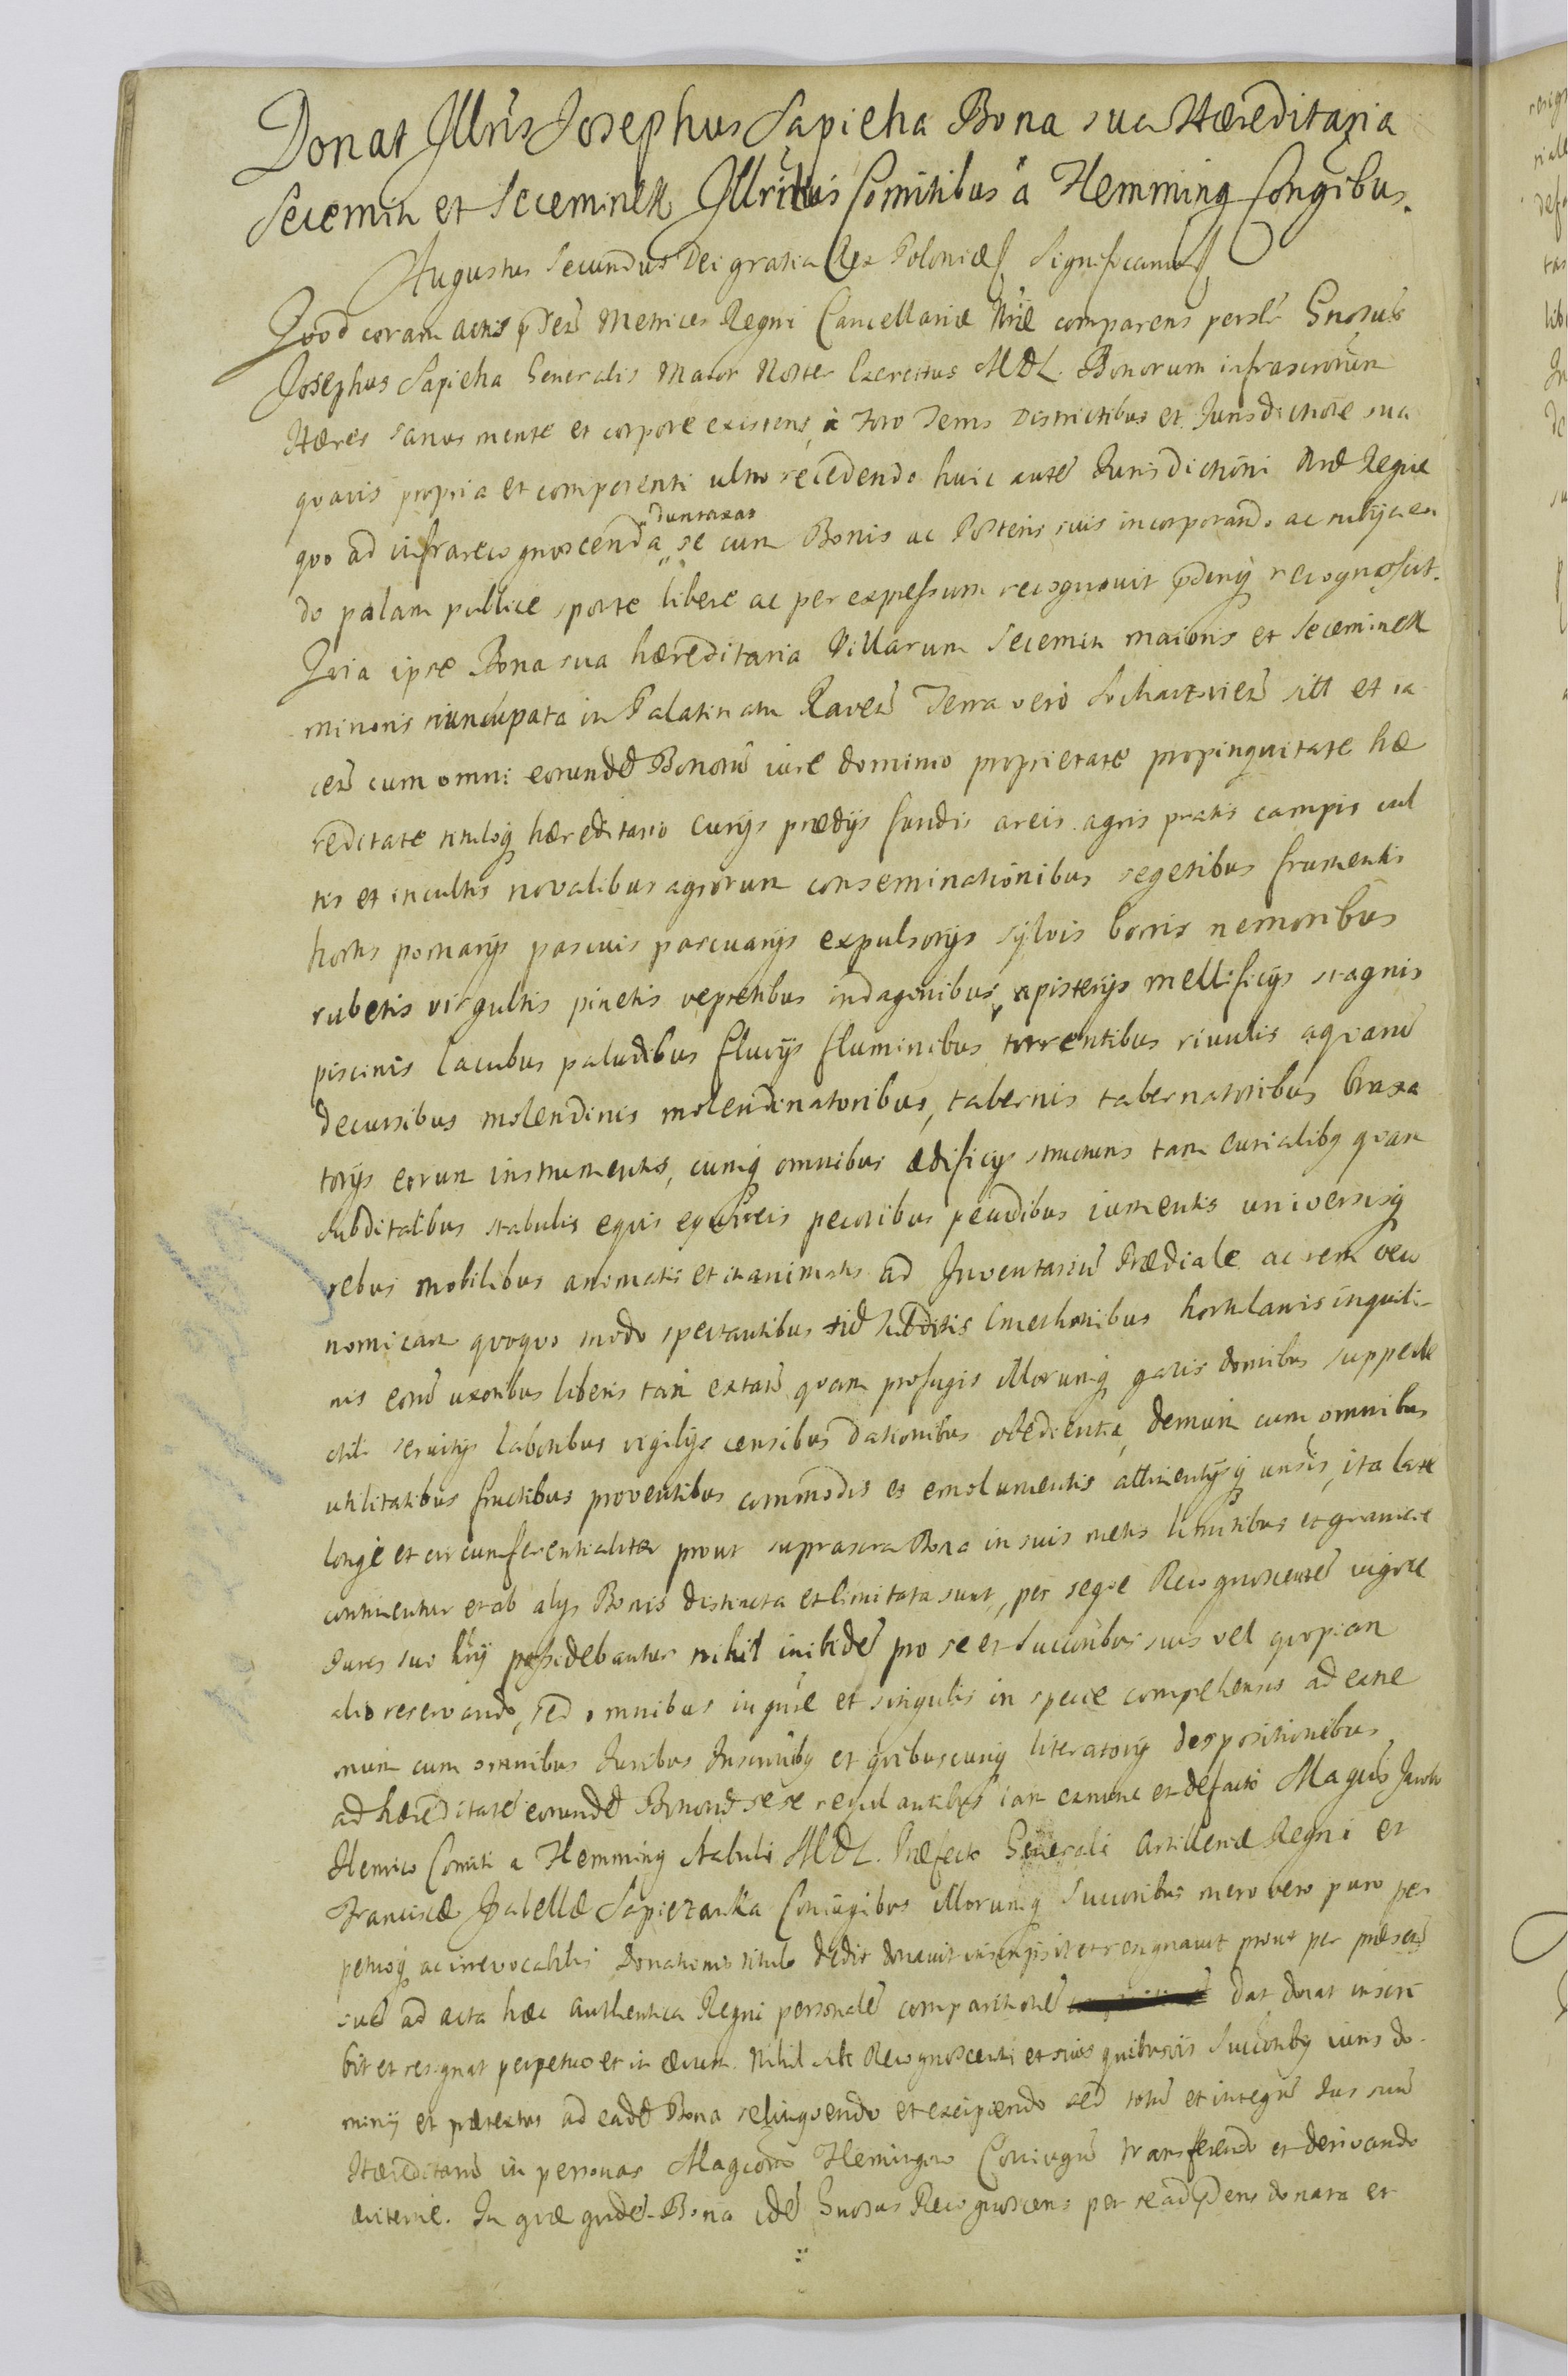 Donat Illris Josephus Sapieha Bona sua Hæreditaria
Secemin et Seceminek Illribus Comitibus a Flemming Congibus.
Augustus Secundus Dei gratia Rex Poloniæ Significamus
Quod coram actis pñtibus Metrices Regni Cancellariæ Nræ comparens persolr Gnosus
Josephus Sapieha Generalis Maior Noster Exercitus MDL. Bonorum infrascrorum
Hæres sanus mente et corpore existens, a Foro Terris Districtibus et Jurisdictione sua
quavis propria et competenti ultro recedendo huic autē Jurisdictioni Nræ Regiæ
quo ad infrarecognoscenda duntaxat se cum Bonis ac Posteris suis incorporando ac subijcien
do palam publice sponte libere ac per expressum recognovit pndniq̧ recognoscit.
Quia ipse Bona sua hæreditaria Villarum Secemin maioris et Seceminek
minoris nuncupata in Palatinatu Raven̄ Terra vero Sochaczovien̄ sitt et ia
cen̄ cum omni eorundē Bonorū iure dominio proprietate propinquitate hæ
reditate tituloq̧ hæreditario curijs prædijs fundis areis agris pratis campis cul
tis et incultis novalibus agrorum conseminationibus segetibus frumentis
hortis pomarijs pascuis pascuarijs expulsorijs sylvis borris nemoribus
rubetis virgultis pinetis vepretibus indaginibus, apisterijs mellificijs stagnis
piscinis lacubus paludibus fluvijs fluminibus torrentibus rivulis aqvarū
decursibus molendinis molendinatoribus, tabernis tabernatoribus braxa
torijs eorum instrumentis, cumq̧ omnibus ædificijs structuris tam curialibȝ qvam
subditalibus stabulis equis equireis pecoribus pecudibus iumentis universisq̧
rebus mobilibus animatis et inanimatis ad Inventariū Prædiale ac rem oeco
nomicam quoquo modo spectantibus subditis Cmethonibus hortulanis inquili-
nis eorū uxoribus liberis tam extan̄ quam profugis illorumq̧ gazis domibus suppelle
ctili servitijs laboribus vigilijs censibus dationibus obedientia, demum cum omnibus
utilitatibus fructibus proventibus commodis et emolumentis attinentijsq̧ unsis, ita late
longe et circumferentialiter prout suprascra Bona in suis metis limitibus et granicie
continentur et ab alijs Bonis distincta et limitata sunt, per seqve Recognoscentē vigore
Juris sui huij possidebantur nihil inibidē pro se et Succoribus suis vel qvopiam
alio reservando, sed omnibus in gñre et singulis in specie comprehensis ad exne
mum cum omnibus Juribus Inscribȝ et qvibuscunq̧ literatorij dispositionibus
ad hæreditatē eorundē Bonorū sese regulantibus iam ex nunc et defacto Magcis Jacobo
Henrico Comiti a Flemming Stabuli MDL. Præfecto Generali Artilleriæ Regni et
Franciscæ Isabellæ Sapiezanka Coniugibus illorumq̧ Succoribus mero vero puro per
petuoq̧ ac irrevocabili Donationis titulo dedit donavit inscripsit et resignavit prout per præsen̄
suā ad acta hæc authentica Regni personalē comparitionē dat donat inscri
bit et resignat perpetuo et in ævum. Nihil sibi Recognoscenti et suis quibusvis Succoribȝ iuris do-
minij et prætextus ad eadē Bona relinquendo et excipiendo sed totū et integrū Jus suū
Hæreditariū in personas Magcorū Flemingow Coniugū transferendo et derivando
æviternē. In quæ quidē Bona idē Gnosus Recognoscens per se ad pñdens donata et